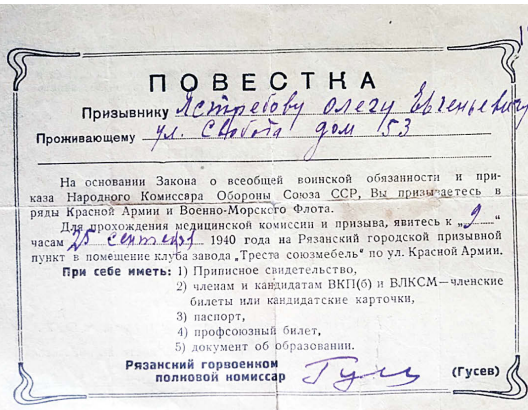 ПОВЕСТКА
Призывнику Ястребову Олегу Евгеньевичу
Проживающему ул. Свобода дом 53
На основании Закона о всеобщей воинской обязанности и при-
каза Народного Комиссара Обороны Союза ССР, Вы призываетесь в
ряды Красной Армии и Военно-Морского Флота.
Для прохождения медицинской комиссии и призыва, явитесь к „9“
часам 25 сентября 1940 года на Рязанский городской призывной
пункт в помещение клуба завода „Треста союзмебель" по ул. Красной Армии.
При себе иметь: 1) Приписное свидетельство,
2) членам и кандидатам ВКП(б) и ВЛКСМ—членские
билеты или кандидатские карточки,
3) паспорт,
4) профсоюзный билет,
5) документ об образовании.
Рязанский горвоенком
полковой комиссар
(Гусев)